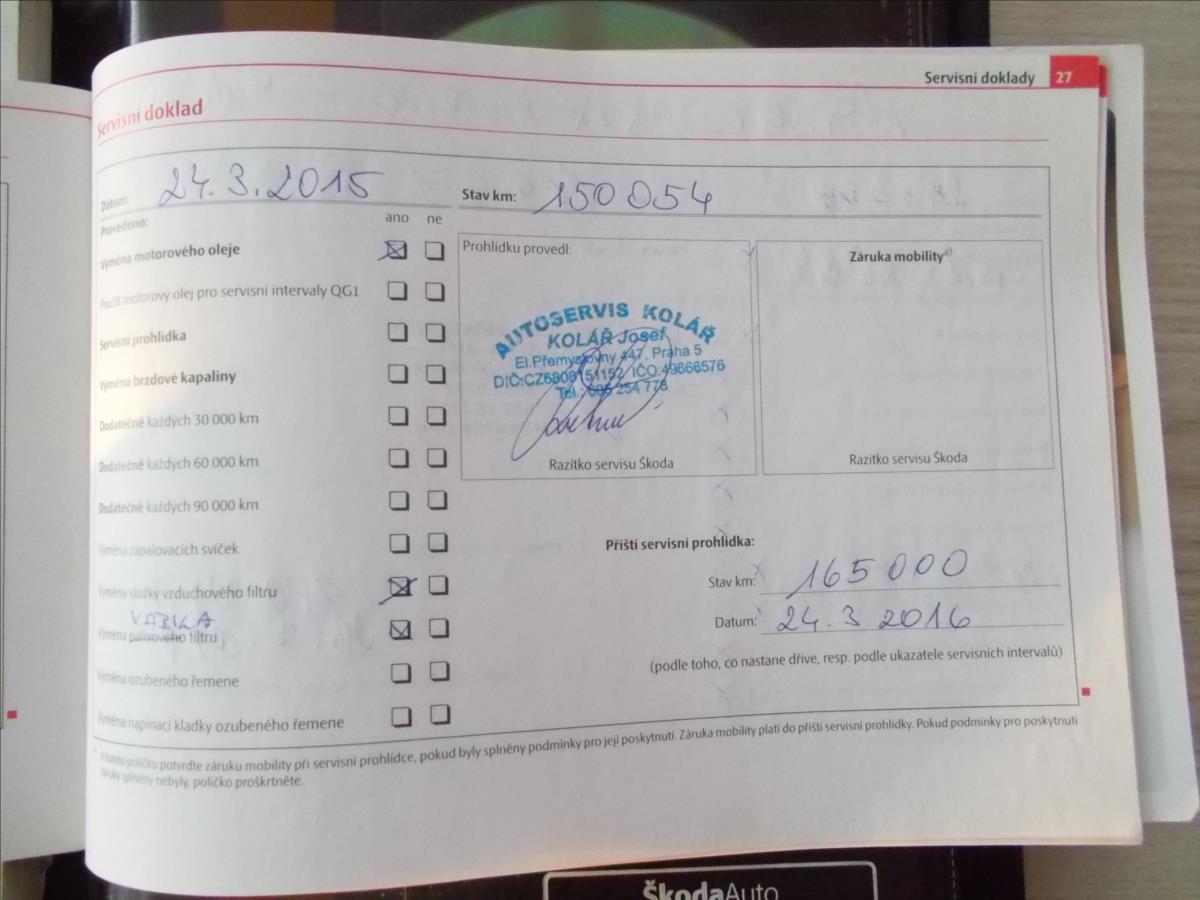 Servisní doklady 27
Servisní doklad
Datum: 24.3.2015
Stav km: 150 054
Provedeno:
ano ne
Výměna motorového oleje
Použit motorový olej pro servisní intervaly QG1
Servisní prohlídka
Výměna brzdové kapaliny
Dodatečně každých 30 000 km
Dodatečně každých 60 000 km
Dodatečně každých 90 000 km
Výměna zapalovacích svíček
Výměna vložky vzduchového filtru
Výměna palivového filtru
Výměna ozubeného řemene
Výměna napínací kladky ozubeného řemene
Prohlídku provedl:
AUTOSERVIS KOLÁŘ
KOLÁŘ Josef
El.Přemyslovny 447, Praha 5
DIČ:CZ6808151152 IČO:49666576
Tel.: 254 778
Razítko servisu Škoda
Záruka mobility a)
Razítko servisu Škoda
Příští servisní prohlídka:
Stav km: 165 000
Datum: 24.3.2016
(podle toho, co nastane dříve, resp. podle ukazatele servisních intervalů)
V tomto políčku potvrďte záruku mobility při servisní prohlídce, pokud byly splněny podmínky pro její poskytnutí. Záruka mobility platí do příští servisní prohlídky. Pokud podmínky pro poskytnutí
záruky splněny nebyly, políčko proškrtněte.
ŠkodaAuto